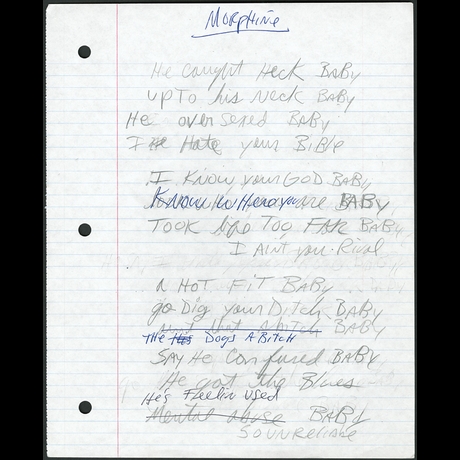 MORPHINE
He caught Heck BABY
UP TO his Neck BABY
He oversexed BABY
I Hate your BiBle
I Know your GOD BABY
Know Where you are BABY
TOOK Too FAR BABY
I AINT your Rival
a HOT FiT BABY
go Dig your Ditch BABY
The Dogs A Bitch BABY
SAY He Confused BABY
He got the Blues
He's Feelin used
Mental abuse BABY